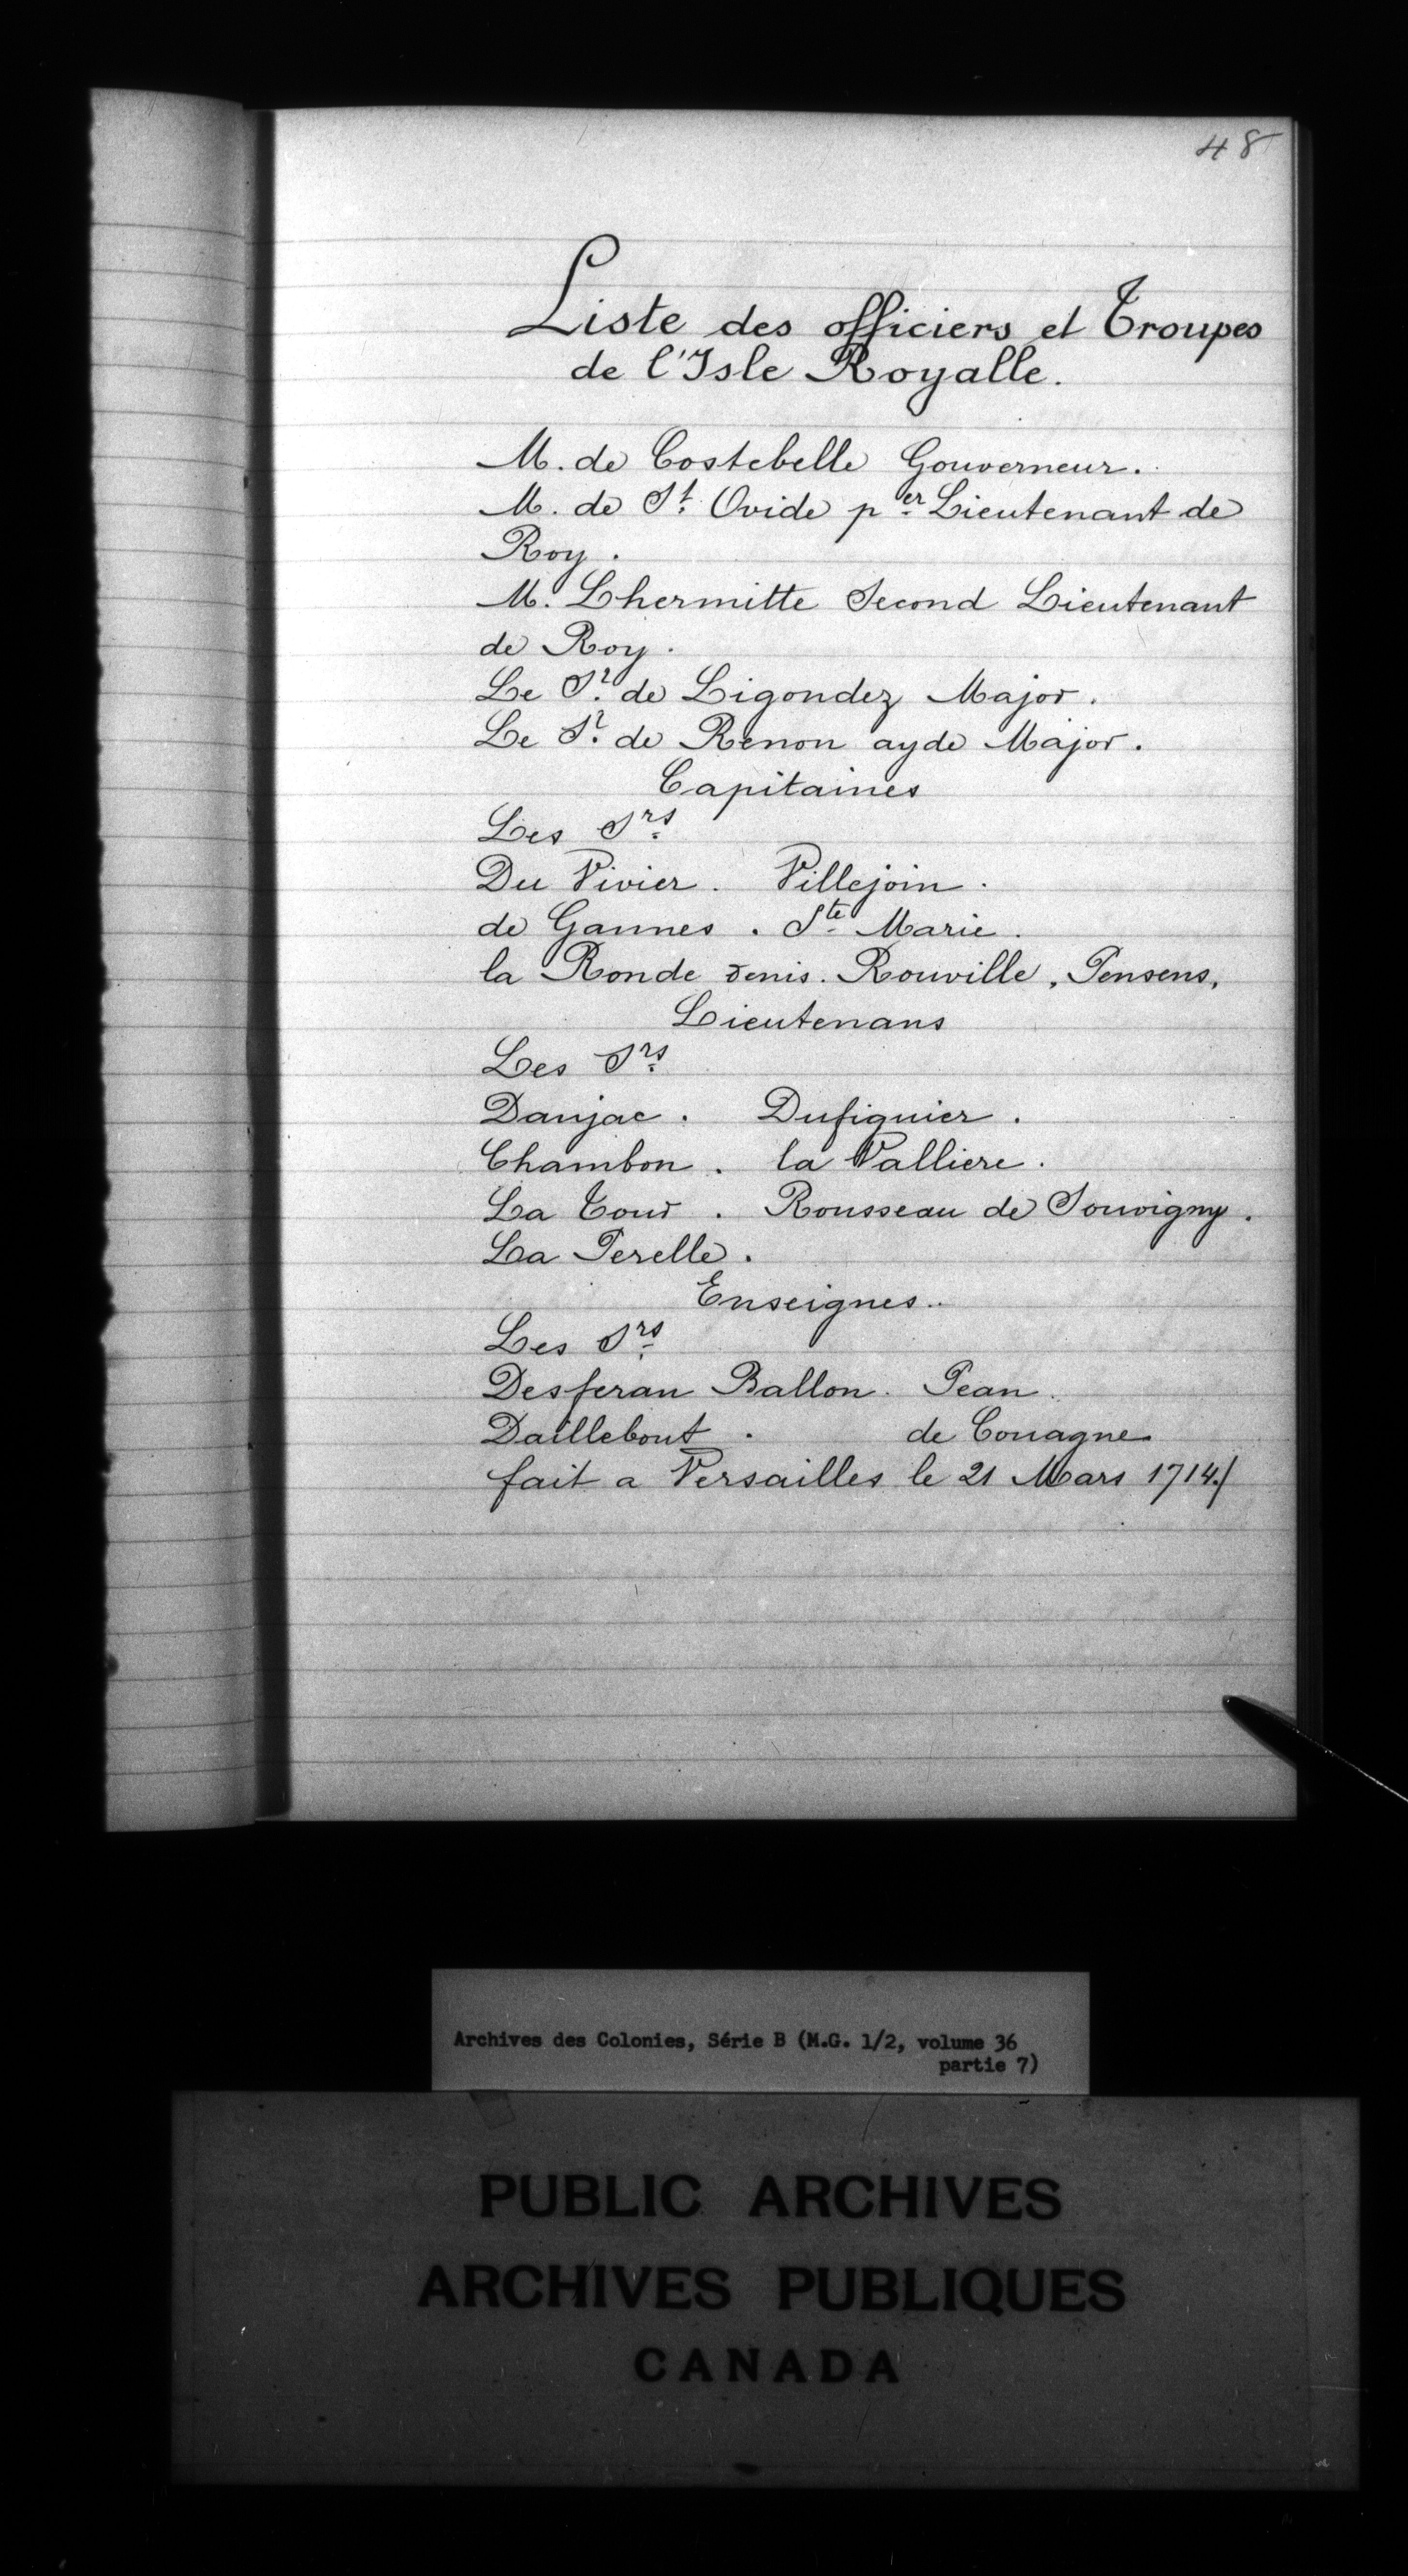 48
Liste des officiers et Troupes
de l'Isle Royalle.
M. de Costebelle Gouverneur.
M. de St. Ovide per Lieutenant de
Roy.
M. Lhermitte Second Lieutenant
de Roy.
Le Sr. de Ligondez Major.
Le Sr. de Renon ayde Major.
Capitaines
Les Srs
Du Vivier. Villejoin.
de Gannes. Ste Marie.
la Ronde denis. Rouville, Pensens,
Lieutenans
Les Srs
Danjac. Dufiguier.
Chambon. la Valliere.
La Tour. Rousseau de Souvigny.
La Perelle.
Enseignes..
Les Srs
Desferan Ballon. Pean.
Daillebout. de Couagne
fait a Versailles le 21 Mars 1714./
Archives des Colonies, Série B (M.G. 1/2, volume 36
partie 7)
PUBLIC ARCHIVES
ARCHIVES PUBLIQUES
CANADA